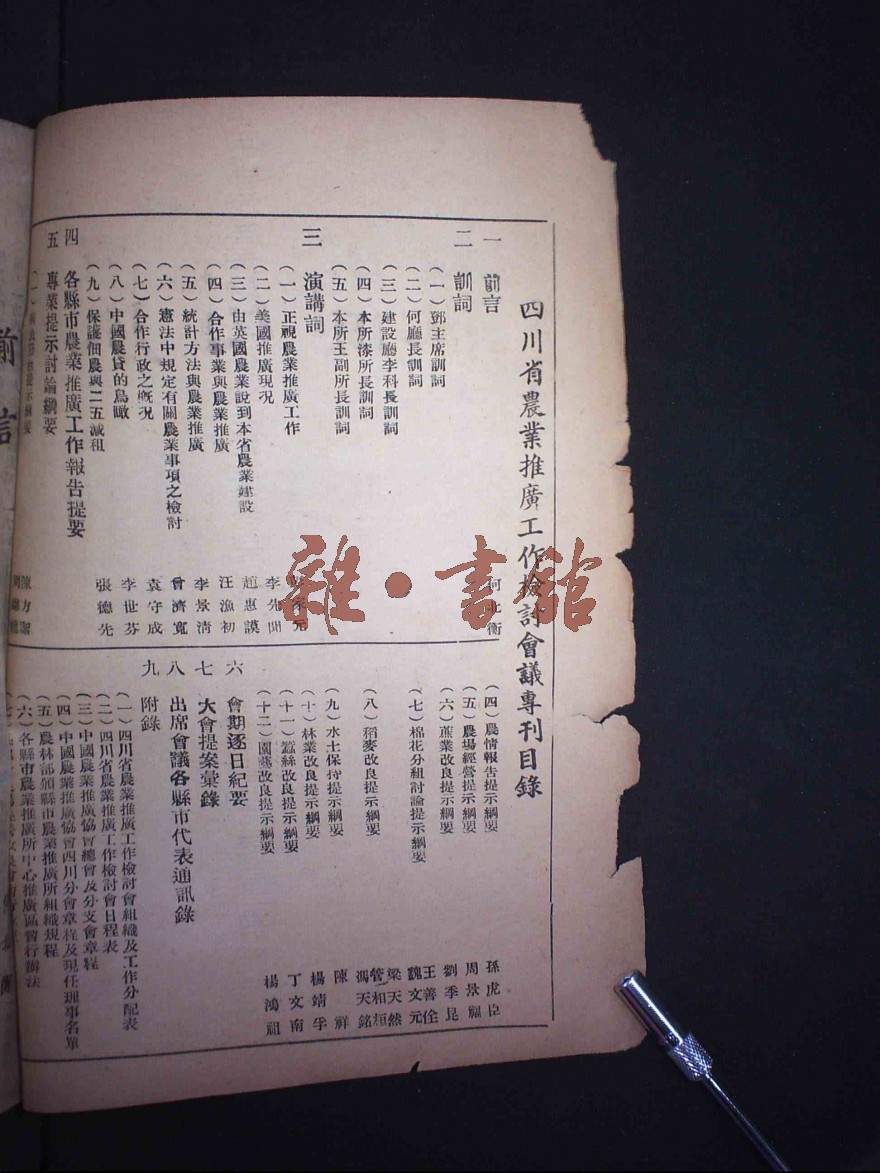 四川省農業推廣工作檢討會議專刊目錄
一 前言 何北衡
二 訓詞
（一）鄧主席訓詞
（二）何廳長訓詞
（三）建設廳李科長訓詞
（四）本所漆所長訓詞
（五）本所王副所長訓詞
三 演講詞
（一）正視農業推廣工作
（二）美國推廣現況 李先聞
（三）由英國農業說到本省農業建設 趙惠謨
（四）合作事業與農業推廣 汪漁初
（五）統計方法與農業推廣 李景清
（六）憲法中規定有關農業事項之檢討 曾濟寬
（七）合作行政之概況 袁守成
（八）中國農貸的鳥瞰 李世芬
（九）保護佃農與二五減租 張德先
四 各縣市農業推廣工作報告提要
五 專業提示討論綱要
陳方潔
（四）農情報告提示綱要 孫虎臣
（五）農場經營提示綱要 周景福
（六）蔗業改良提示綱要 劉季昆
（七）棉花分組討論提示綱要 王善佺 魏文元 梁天然
（八）稻麥改良提示綱要 管相桓 馮天銘
（九）水土保持提示綱要 陳祥
（十）林業改良提示綱要 楊靖孚
（十一）蠶絲改良提示綱要 丁文南
（十二）園藝改良提示綱要 楊鴻祖
六 會期逐日紀要
七 大會提案彙錄
八 出席會議各縣市代表通訊錄
九 附錄
（一）四川省農業推廣工作檢討會組織及工作分配表
（二）四川省農業推廣工作檢討會日程表
（三）中國農業推廣協會總會及分支會章程
（四）中國農業推廣協會四川分會章程及現任理事名單
（五）農林部頒縣市農業推廣所組織規程
（六）各縣市農業推廣所中心推廣區暫行辦法
雜·書舘